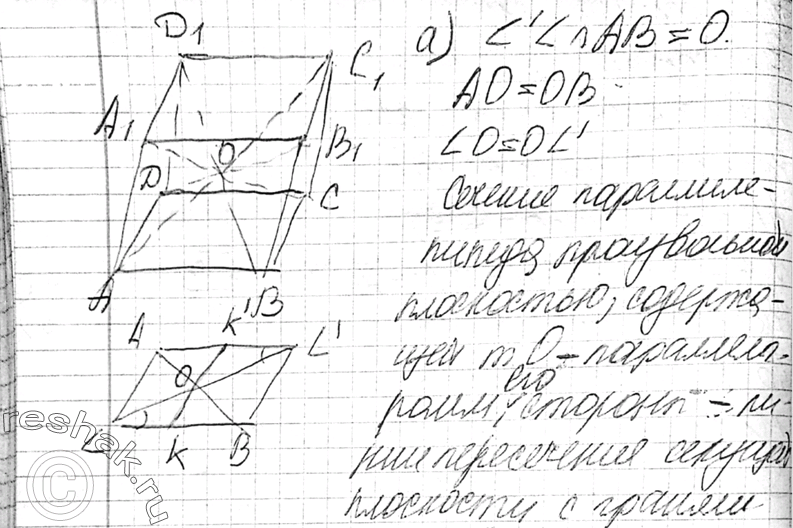 D₁
C₁
A₁
B₁
O
D
C
A
B
A
K'
L'
O
L
K
B
а) L'L ∩ AB = O.
AO = OB
LO = OL'
Сечение параллеле-
пипеда произвольной
плоскостью, содержа-
щей т. O – параллело-
грамм, его стороны – ли-
нии пересечения секущей
плоскости с гранями
© reshak.ru